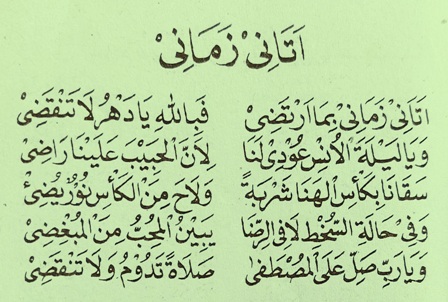 اَتَانِيْ زَمَانِيْ
اَتَانِيْ زَمَانِيْ بِمَا ارْتَضِيْ فَبِاللهِ يَا دَهْرُ لَا تَنْقَضِيْ
وَيَا لَيْلَةَ الْاُنْسِ عُوْدِيْ لَنَا لِاَنَّ الْحَبِيْبَ عَلَيْنَا رَاضِيْ
سَقَانَا بِكَأْسِ الْهَنَا شَرْبَةً وَلَاحَ مِنَ الْكَأْسِ نُوْرٌ يُضِئْ
وَفِيْ حَالَةِ السُّخْطِ لَا فِي الرِّضَا يَبِيْنُ الْمُحِبُّ مِنَ الْمُبْغِضِيْ
وَيَارَبِّ صَلِّ عَلَى الْمُصْطَفٰى صَلَاةً تَدُوْمُ وَلَا تَنْقَضِيْ